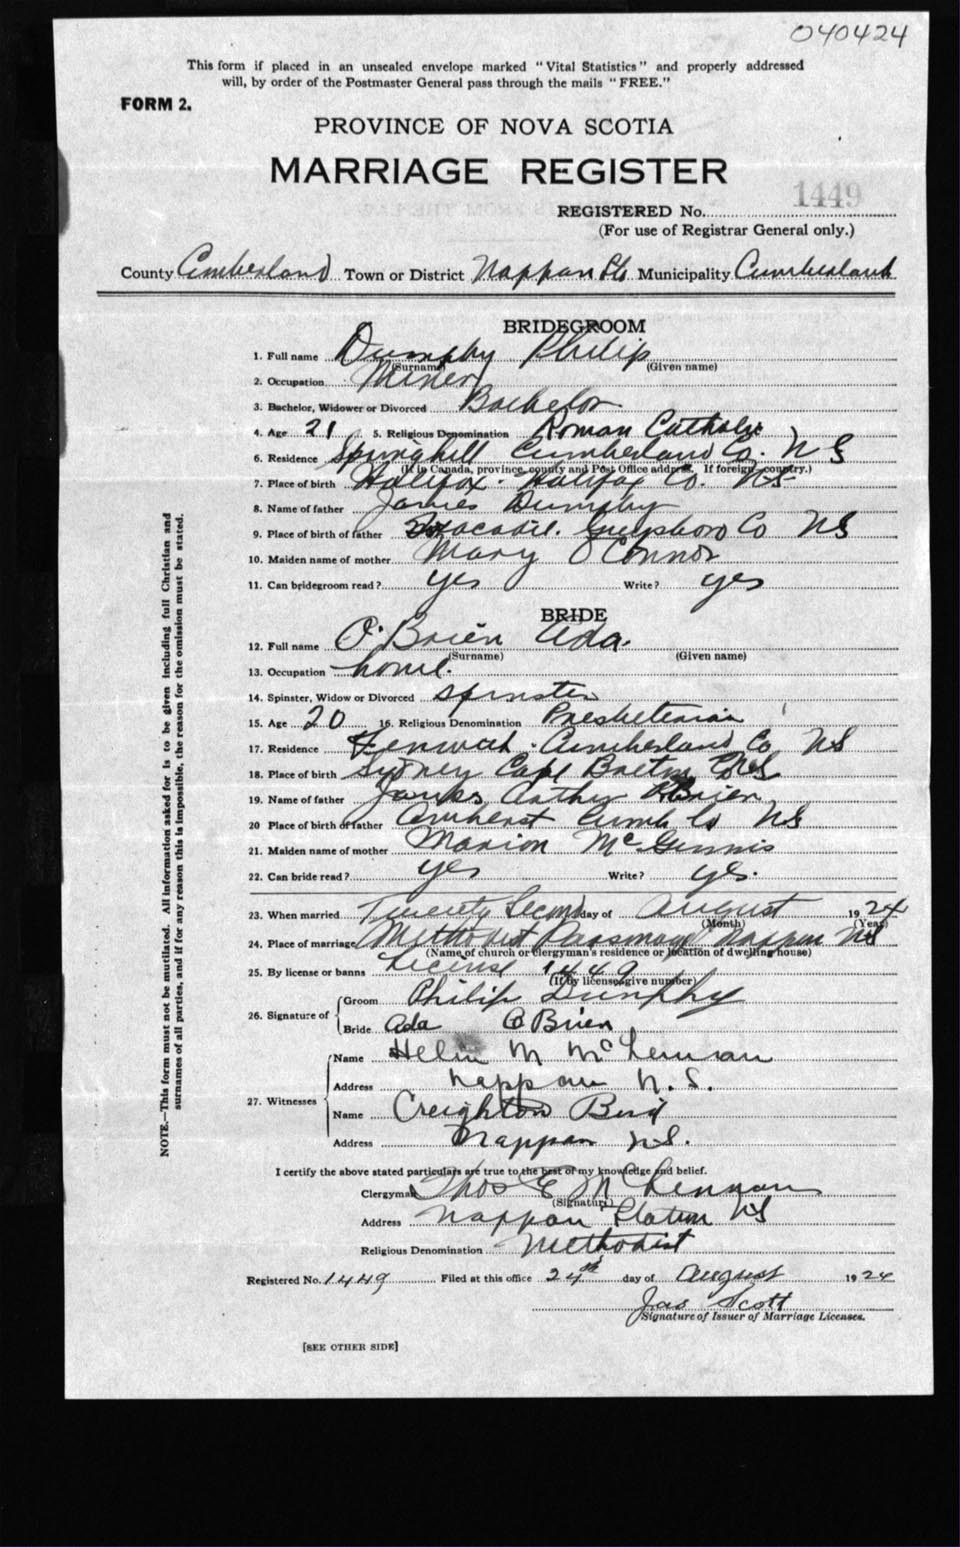 040424
This form if placed in an unsealed envelope marked "Vital Statistics" and properly addressed
will, by order of the Postmaster General pass through the mails "FREE."
FORM 2.
PROVINCE OF NOVA SCOTIA
MARRIAGE REGISTER
REGISTERED No. 1449
(For use of Registrar General only.)
County Cumberland Town or District Nappan Municipality Cumberland
BRIDEGROOM
1. Full name Dumphy Philip
(Surname) (Given name)
2. Occupation Miner
3. Bachelor, Widower or Divorced Bachelor
4. Age 21 5. Religious Denomination Roman Catholic
6. Residence Springhill Cumberland Co. N S
(If in Canada, province, county and Post Office address. If foreign, country.)
7. Place of birth Halifax. Halifax Co. NS
8. Name of father James Dumphy
9. Place of birth of father Guysboro Co NS
10. Maiden name of mother Mary O'Connor
11. Can bridegroom read? yes Write? yes
BRIDE
12. Full name O'Brien Ada.
(Surname) (Given name)
13. Occupation home.
14. Spinster, Widow or Divorced spinster
15. Age 20 16. Religious Denomination Presbeterian
17. Residence Fenwick. Cumberland Co NS
18. Place of birth Sydney Cape Breton NS
19. Name of father Arthur O'Brien
20 Place of birth of father Amherst Cumb Co NS
21. Maiden name of mother Marion McGinnis
22. Can bride read? yes Write? yes.
23. When married Twenty Second day of August 1924
(Month) (Year)
24. Place of marriage Methodist Parsonage Nappan NS
(Name of church or clergyman's residence or location of dwelling house)
25. By license or banns License 1449
(If by license, give number)
26. Signature of
Groom Philip Dunphy
Bride Ada O'Brien
27. Witnesses
Name Helen M McLennan
Address Nappan N.S.
Name Creighton
Address Nappan NS.
I certify the above stated particulars are true to the best of my knowledge and belief.
Clergyman Thos E McLennan
(Signature)
Address Nappan Station NS
Religious Denomination Methodist
Registered No. 1449 Filed at this office 24th day of August 1924
Jas Scott
Signature of Issuer of Marriage Licenses.
[SEE OTHER SIDE]
NOTE.—This form must not be mutilated. All information asked for is to be given including full Christian and
surnames of all parties, and if for any reason this is impossible, the reason for the omission must be stated.